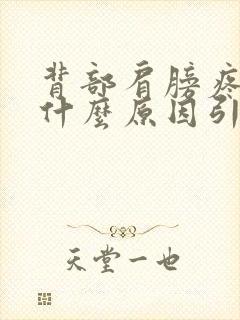 背部肩膀疼
什麼原因引
天堂一也